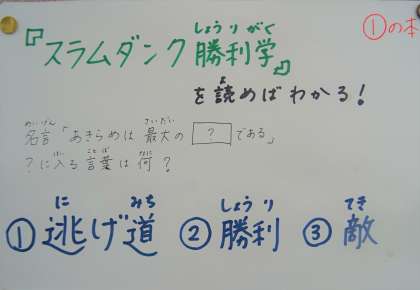 ①の本
『スラムダンク勝利学』
しょうりがく
を読めばわかる!
よ
名言「あきらめは最大の ? である」
めいげん さいだい
?に入る言葉は何?
はい ことば なに
①逃げ道 ②勝利 ③敵
に みち しょうり てき